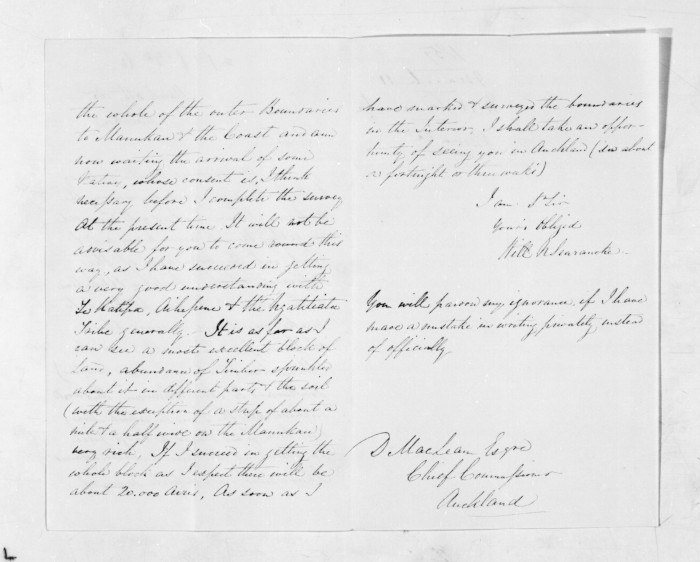 the whole of the outer Boundaries
to Manukau & the Coast and am
now waiting the arrival of some
Natives, whose consent is, I think
necessary before I complete the survey
At the present time It will not be
advisable for you to come round this
way, as I have succeeded in getting
a very good understanding with
Te Katipa, Aihepene & the Ngatitiata
Tribe generally. It is as far as I
can see a most excellent block of
Land, abundance of Timber sprinkled
about it in different parts & the soil
(with the exception of a strip of about a
mile & a half wide on the Manukau)
very rich, If I succeed in getting the
whole block as I expect there will be
about 20.000 Acres, As soon as I
have marked & surveyed the boundaries
in the Interior, I shall take an oppor-
tunity of seeing you in Auckland (in about
a fortnight or three weeks)
I am Dr Sir
Your's Obliged
Will N Searancke
You will pardon my ignorance if I have
made a mistake in writing privately instead
of officially
D MacLean Esqre
Chief Commissioner
Auckland
L